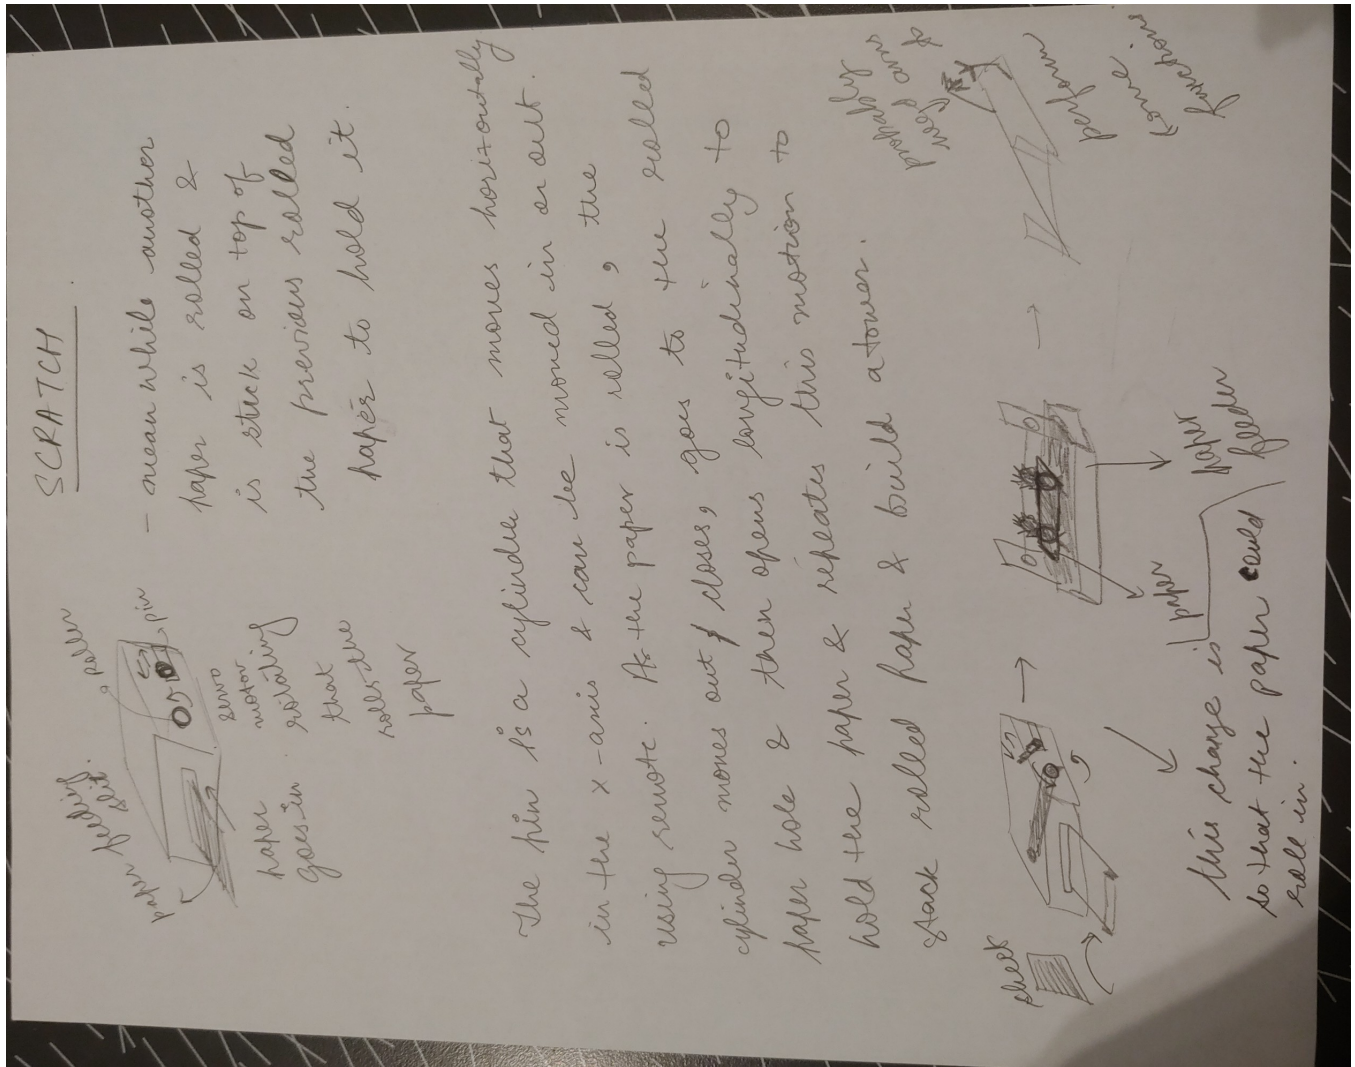 SCRATCH
paper feeding
slit
roller
pin
paper
goes in.
servo
motor
rotating
that
rolls the
paper
- mean while another
paper is rolled &
is stuck on top of
the previous rolled
paper to hold it.
The pin is a cylinder that moves horizontally
in the x-axis & can be moved in or out.
using remote. As the paper is rolled, the
cylinder moves out & closes, goes to the rolled
paper hole & then opens longitudinally to
hold the paper & repeates this motion to
stack rolled paper & build a tower.
sheet
paper
paper
feeder
probably
legs and go
perform
some
functions
this change is
so that the paper could
roll in.